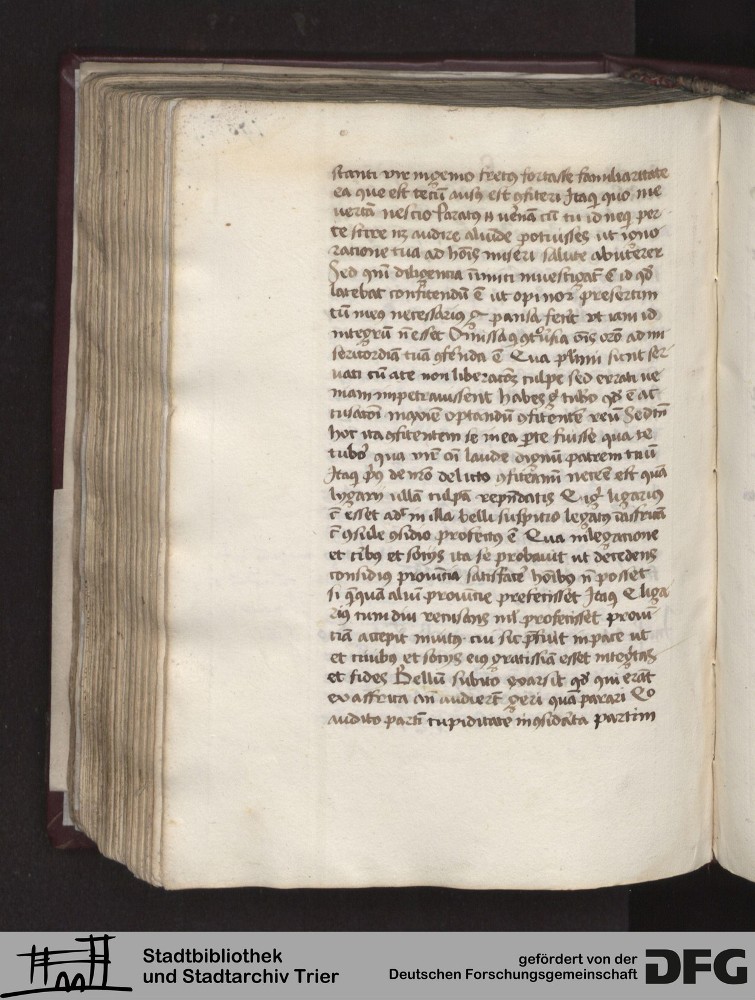 stanti vir ingenio fretus fortasse familiaritate
ea que est tecū ausus est ɔfiteri Itaq quo me
vertā nescio Paratus n̄ venerā cū tu id neq per
te scires nec audire aliunde potuisses ut igno
ratione tua ad hoīs miseri salute abuterer
Sed qm̄ diligentia inimici investigatū ē id qd
latebat confitendū ē ut opinor presertim
cū meus necessarius pansa fecit ut iam id
integrū n̄ esset Omissaq ɔtrouersia oīs orō ad mi
sericordiā tuā ɔferenda ē Qua plurimi sunt ser
uati cū a te non liberatōꝫ culpe sed errati ue
niam impetrauissent habes tubero qd ē ac
cusatori optandū ɔfitentē reū Sed tn̄
hoc ita ɔfitentem se in ea pte fuisse qua te
tubero qua virū oī laude dignū patrem tuū
Itaq prius de uro delicto ɔfiteamī necesse est quā
lygarii ullā culpā reprendatis Q igr ligarius
cū esset adhuc nulla belli suspitio legatus ī affricā
cū ɔsule ɔsidio profectus ē Qua in legatione
et ciuibus et sociis ita se probauit ut decedens
considius prouincia satisfacere hoībus n̄ posset
si quēquā aliū prouincie prefecisset Itaq Q liga
rius cum diu recusans nil profecisset prouin
ciā accepit inuitus cui sic prefuit in pace ut
et ciuibus et sociis eius gratissimā esset integritas
et fides Bellū subito exarsit qd qui erāt
ex affrica an̄ audierūt geri quā parari Quo
audito partī cupiditate incōsiderata partim
Stadtbibliothek
und Stadtarchiv Trier
gefördert von der
Deutschen Forschungsgemeinschaft
DFG